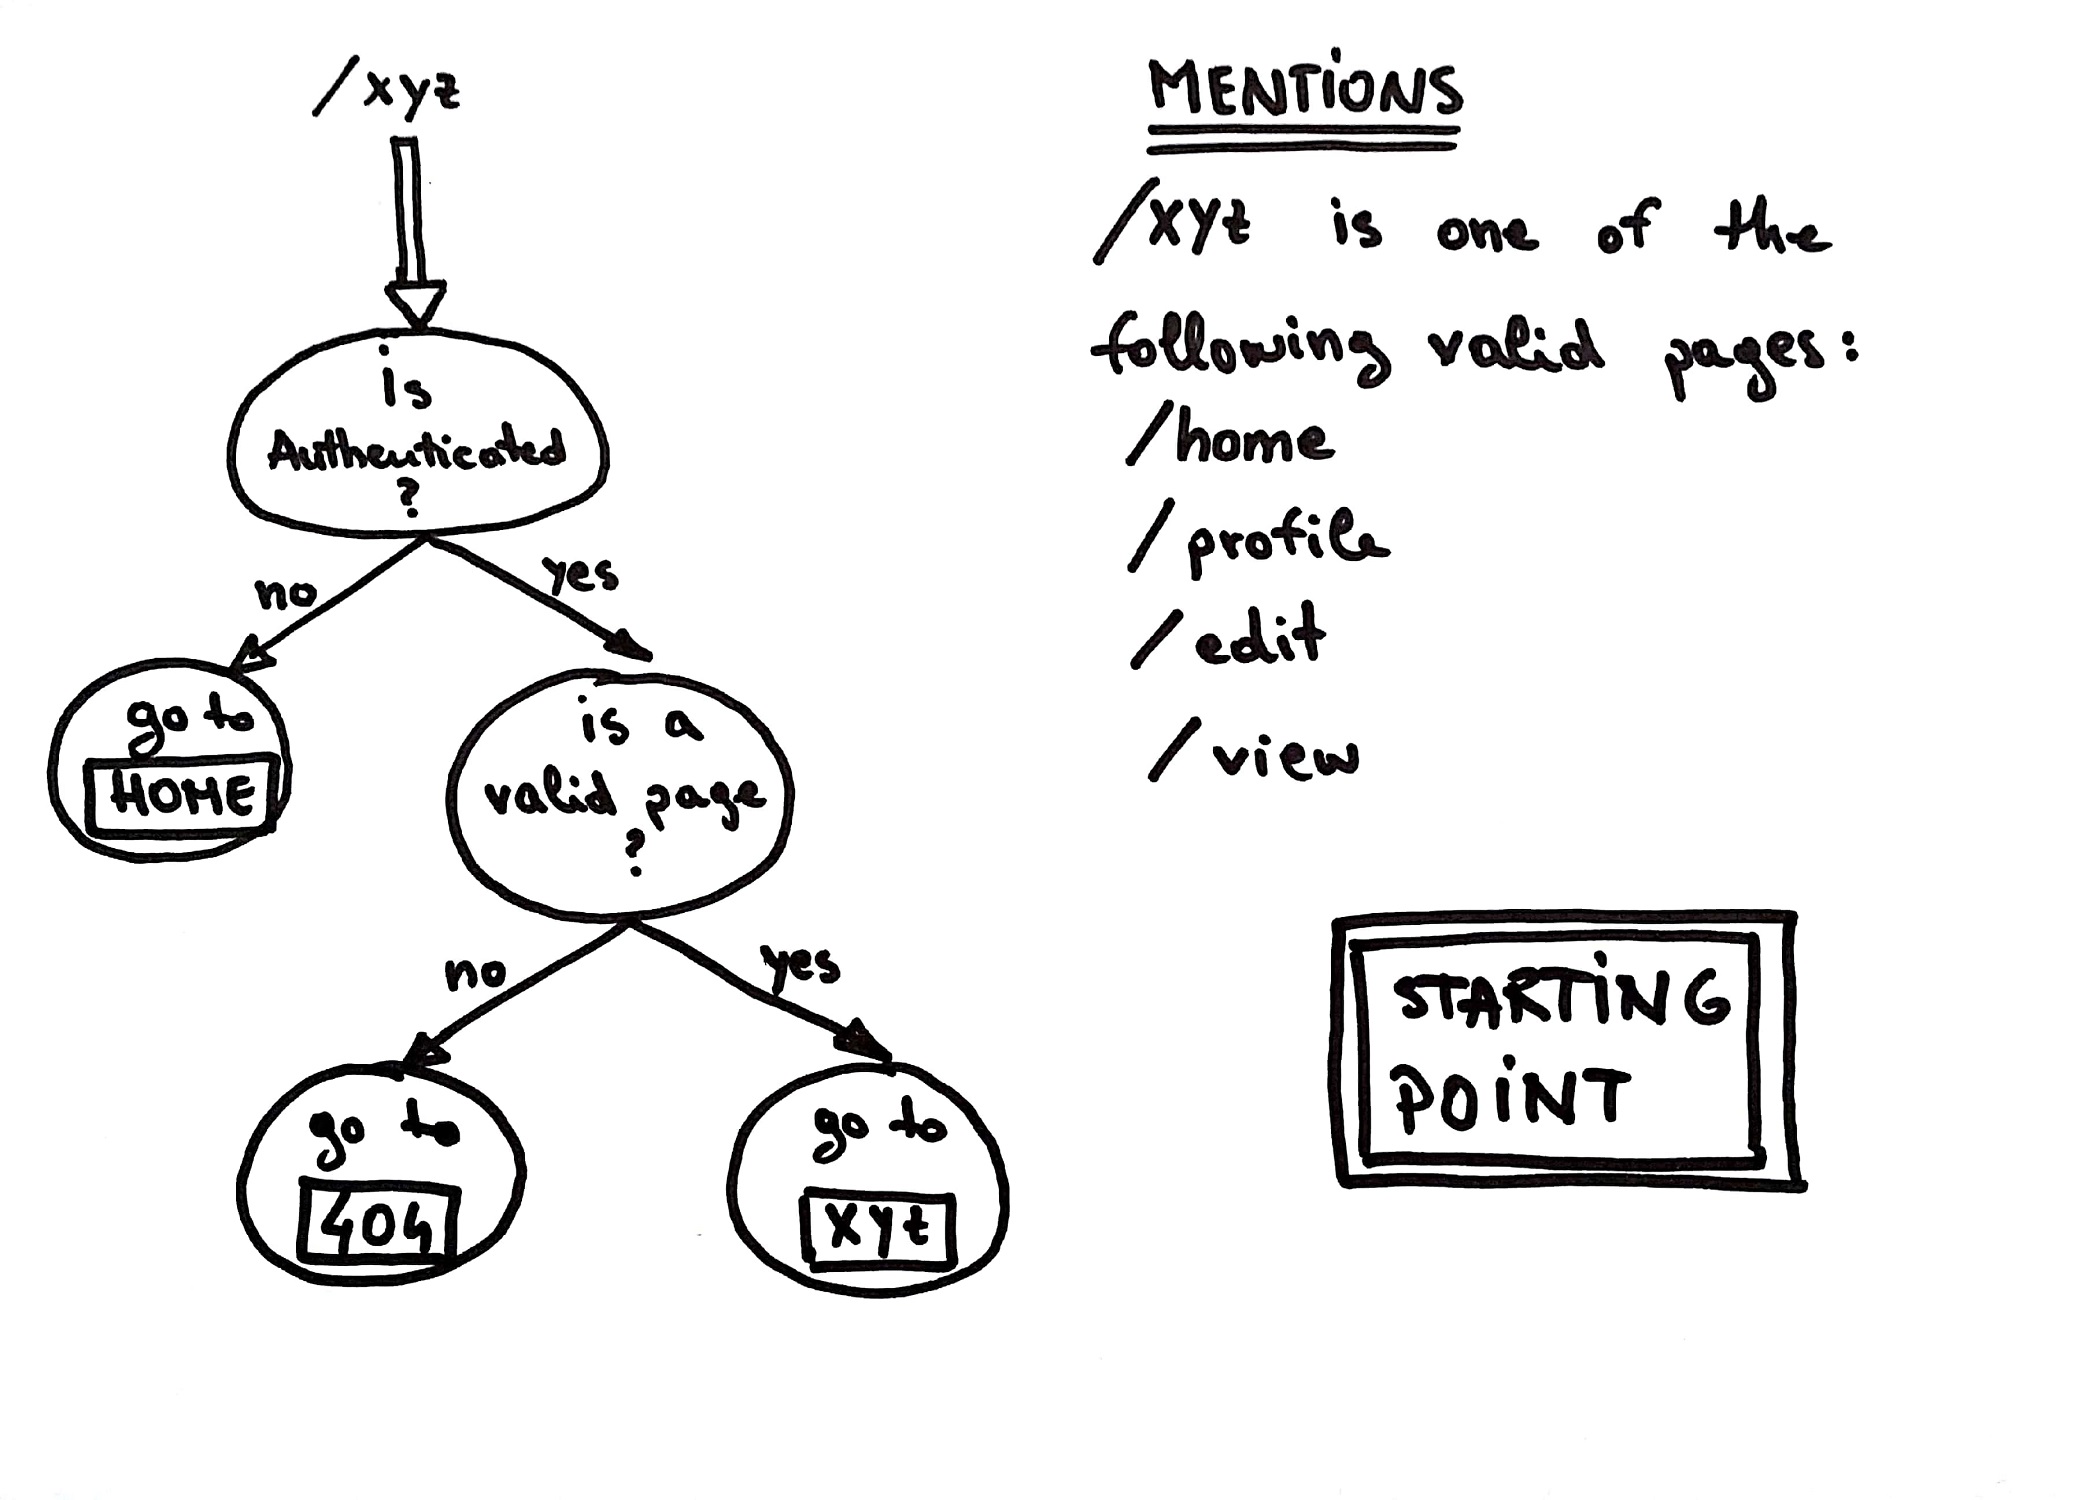 /xyz
is
Authenticated
?
no
yes
go to
HOME
is a
valid page
?
no
yes
go to
404
go to
xyz
MENTIONS
/xyz is one of the
following valid pages:
/home
/profile
/edit
/view
STARTING
POINT